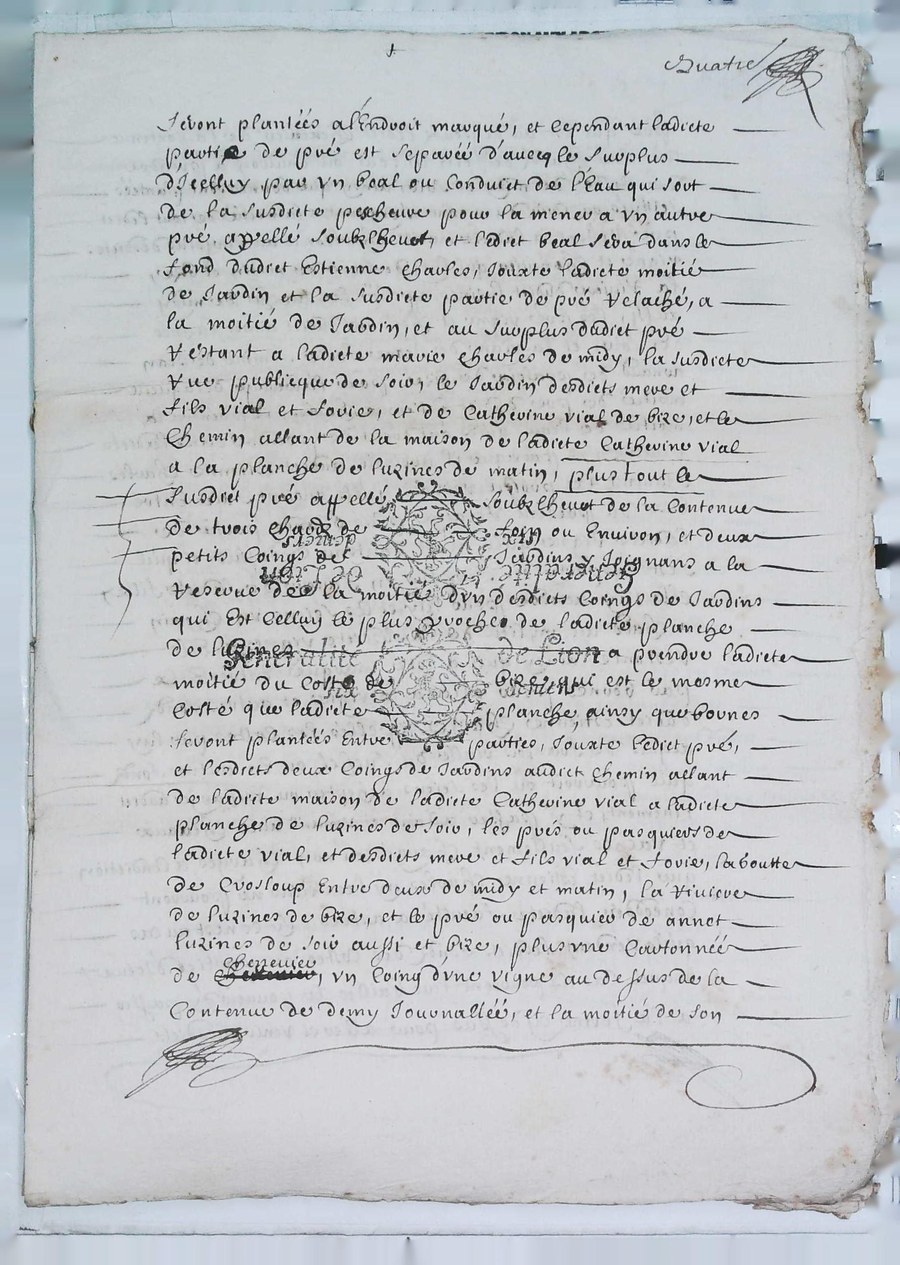 Quatre
seront plantées a l'Endroit marqué, et cependant ladicte
partie de pré est separée d'avecq le surplus
d'Icelluy par vn beal ou conduict de l'Eau qui sort
de la susdicte pescheure pour la mener a vn autre
pré appellé soubz lhevot, et ledict beal sera dans le
fond dudict Estienne charles, Jouxte ladicte moitié
de Jardin et la susdicte partie de pré relaché, a
la moitié de Jardin, et au surplus dudict pré
restant a ladicte marie charles de midy, la susdicte
rue publicque de soir, le Jardin desdicts mere et
fils vial et fovie, et de Catherine vial de bize, et le
Chemin allant de la maison de ladicte Catherine vial
a la planche de luzines de matin, plus tout le
susdict pré appellé soubz lhevot de la Contenue
de trois chards de foin ou Environ, et deux
petits Coings de Jardins y Joignans a la
reserue de la moitié d'vn desdicts Coings de Jardins
qui est Celluy le plus proche de ladicte planche
de luzines a prendre ladicte
Generalité de Lion
moitié du costé de bize, qui est le mesme
six deniers
costé que ladicte planche, ainsy que bornes
seront plantées Entre parties, Jouxte ledict pré,
et lesdicts deux Coings de Jardins audict Chemin allant
de ladicte maison de ladicte Catherine vial a ladicte
planche de luzines de soir, les prés ou pasquiers de
ladicte vial, et desdicts mere et fils vial et fovie, la boutte
de Crosloup Entre deux de midy et matin, la riuiere
de luzines de bize, et le pré ou pasquier de annet
luzines de soir aussi et bize, plus vne Cartonnée
chenevier
de, vn Coing d'vne vigne au dessus de la
Contenue de demy Journallée, et la moitié de son